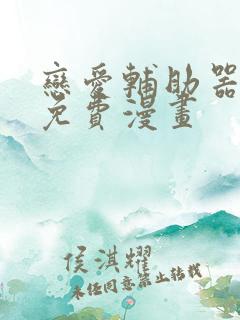 戀愛輔助器
免費漫畫
侯淇耀
未经同意禁止转载